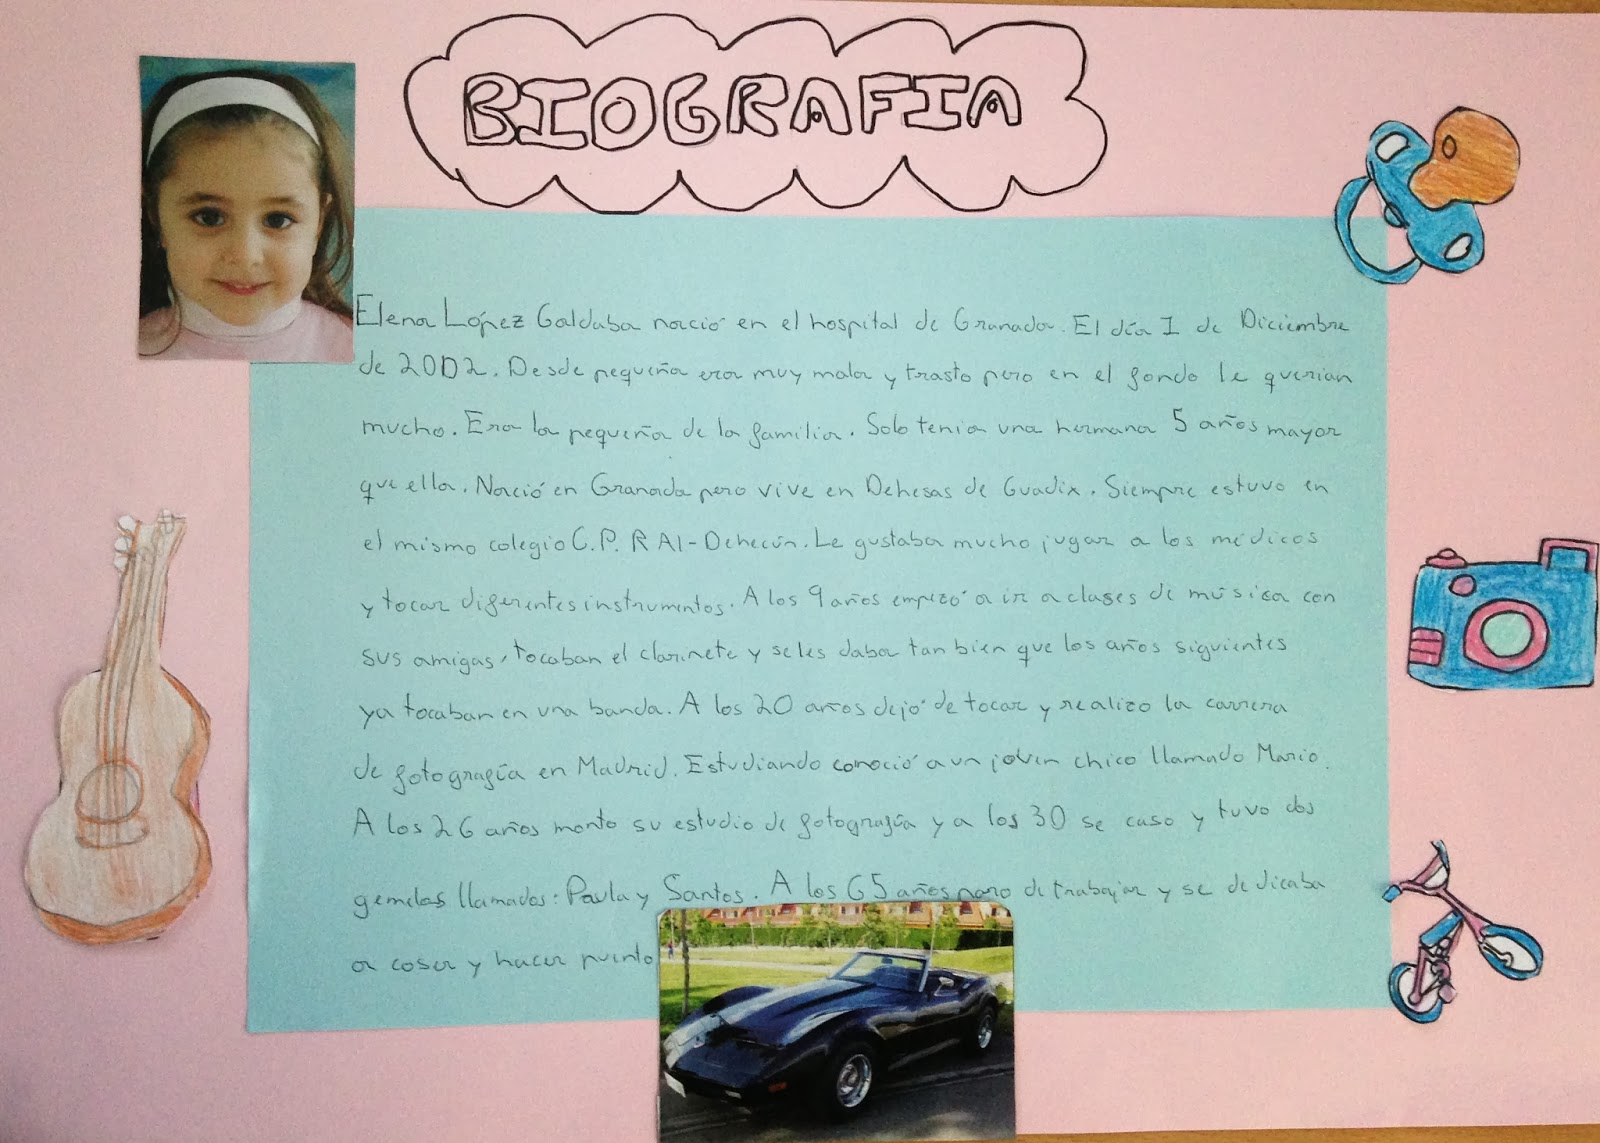 BIOGRAFIA
Elena López Galdaba nació en el hospital de Granada. El día 1 de Diciembre
de 2002. Desde pequeña era muy mala y trasto pero en el fondo le querian
mucho. Era la pequeña de la familia. Solo tenia una hermana 5 años mayor
que ella. Nació en Granada pero vive en Dehesas de Guadix. Siempre estuvo en
el mismo colegio C.P. RAl-Dehecún. Le gustaba mucho jugar a los médicos
y tocar diferentes instrumentos. A los 9 años empezó a ir a clases de música con
sus amigas, tocaban el clarinete y se les daba tan bien que los años siguientes
ya tocaban en una banda. A los 20 años dejó de tocar y realizo la carrera
de fotografía en Madrid. Estudiando conoció a un joven chico llamado Mario.
A los 26 años monto su estudio de fotografía y a los 30 se caso y tuvo dos
gemelos llamados: Paula y Santos. A los 65 años paro de trabajar y se dedicaba
a coser y hacer punto